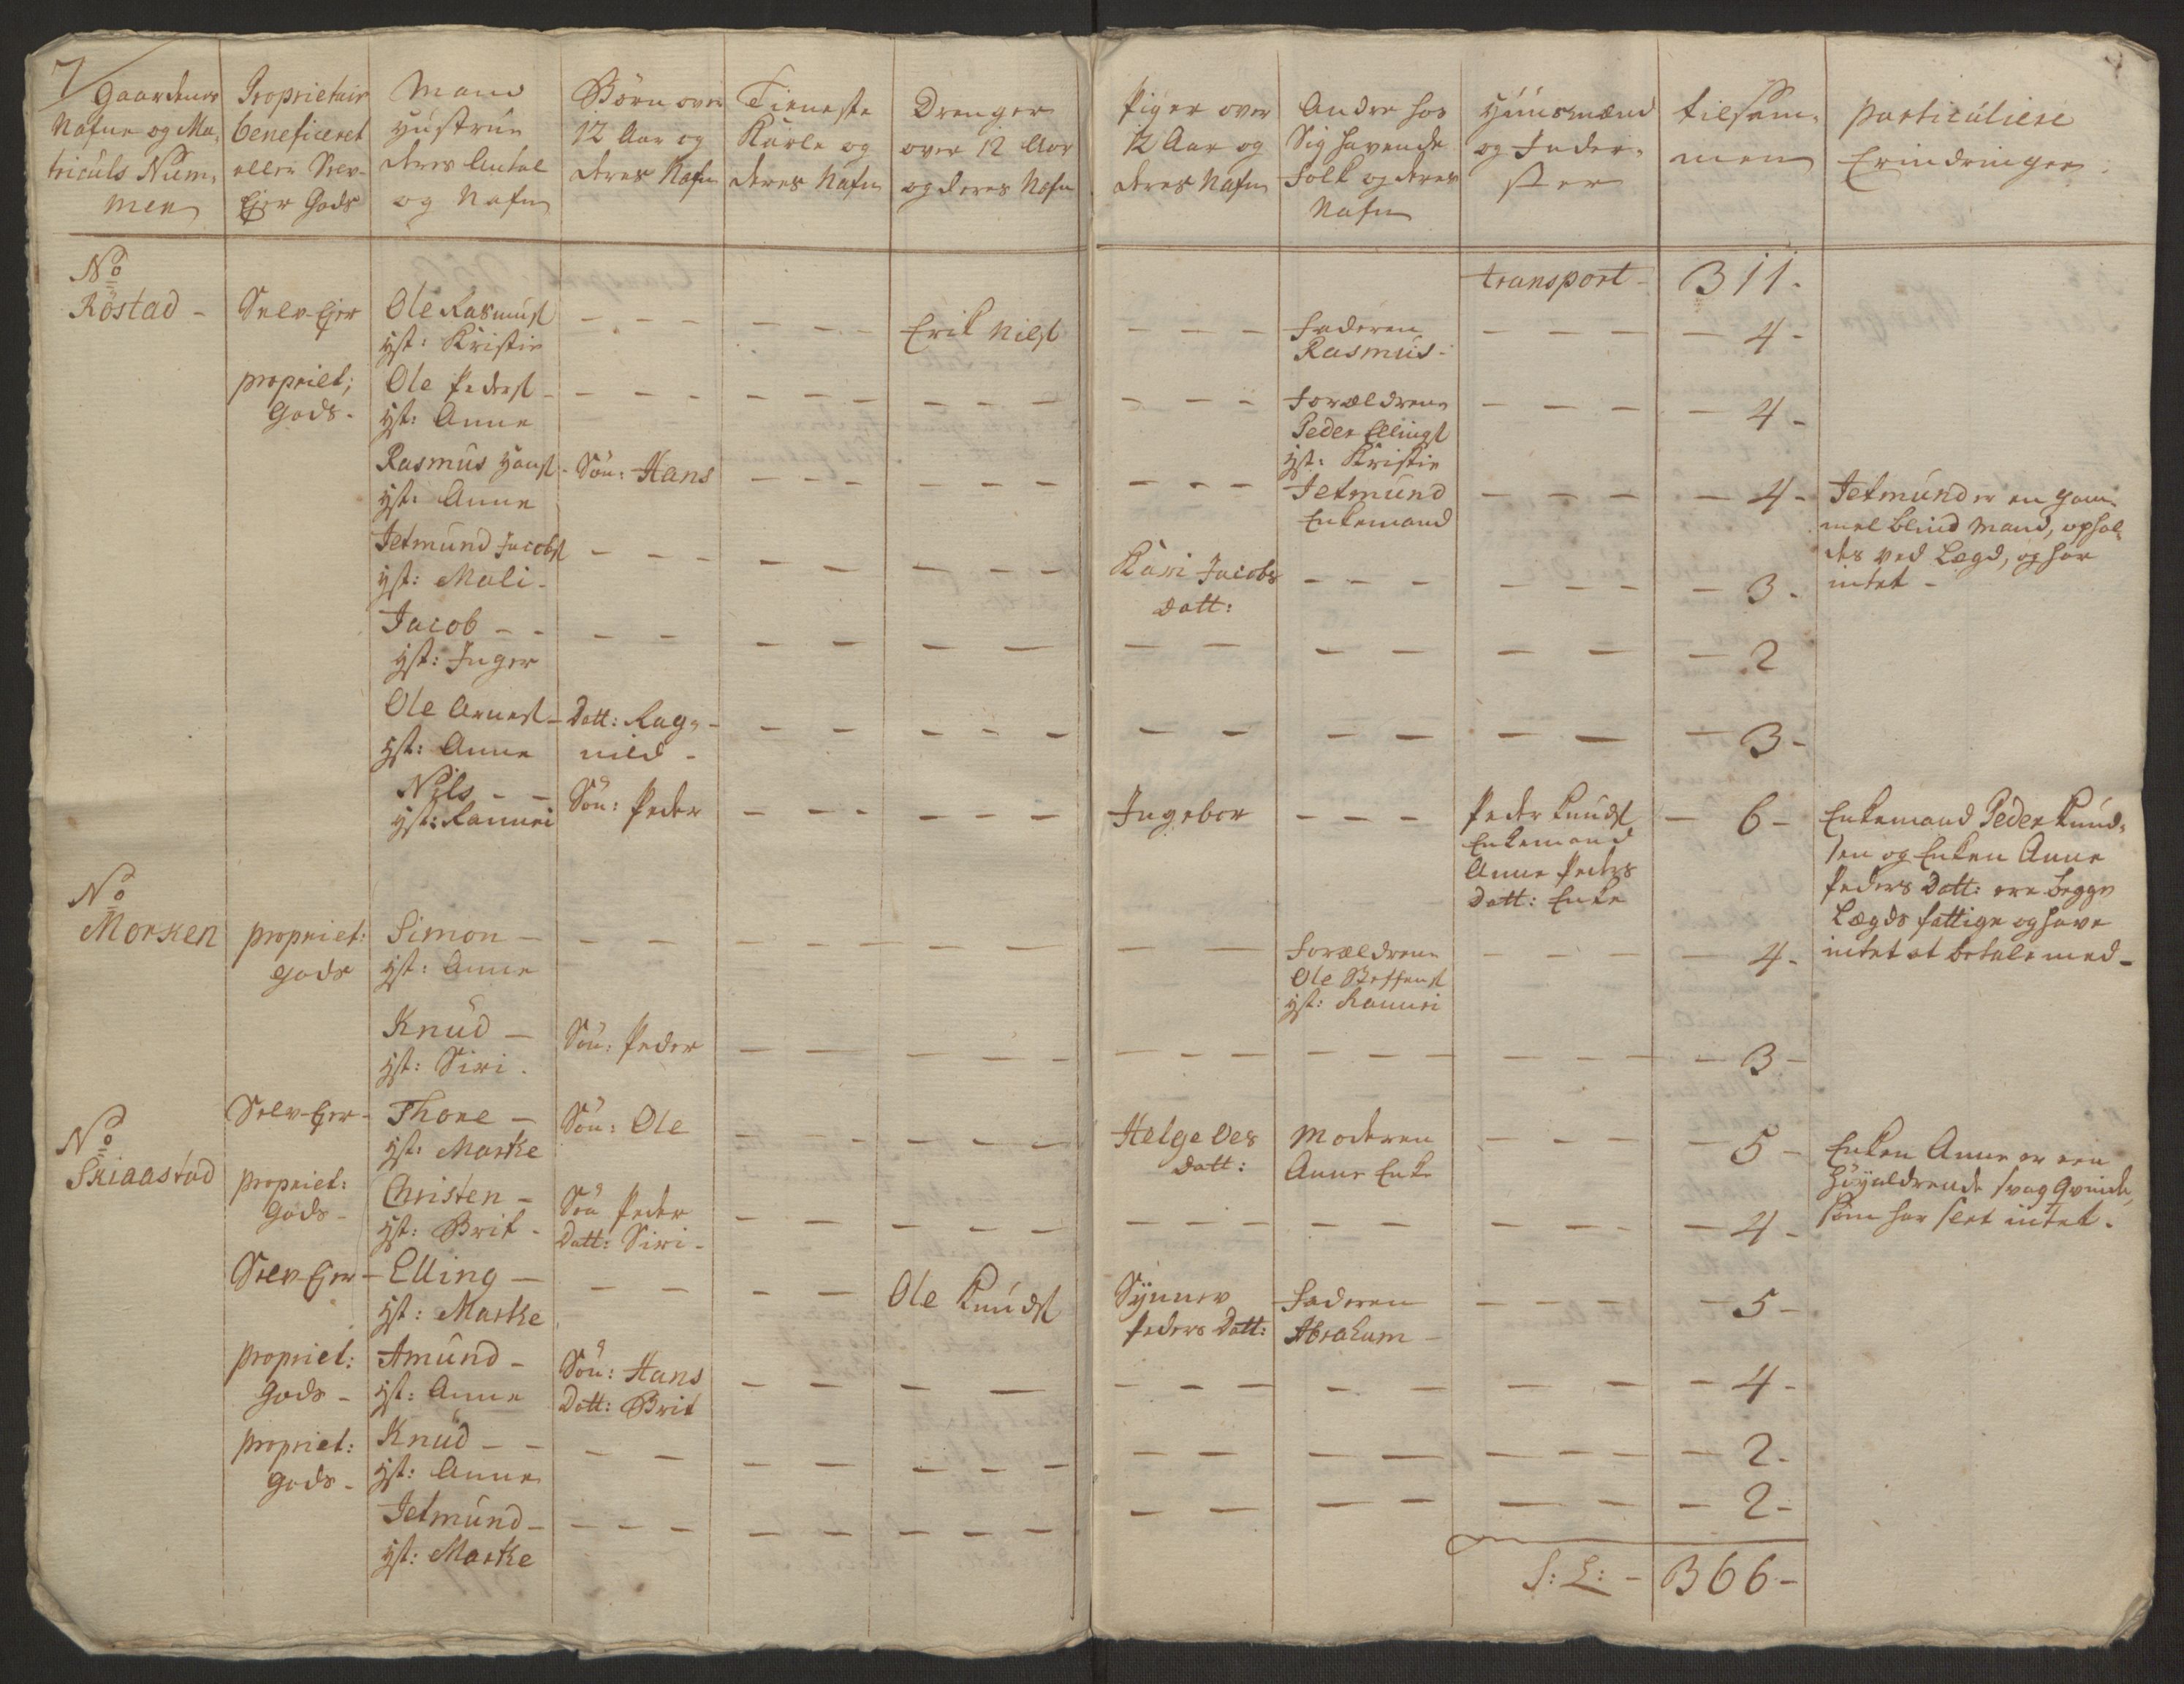 7
Gaardenes
Nafne og Ma-
triculs Num-
mer
Proprietair
beneficeret
eller Selv-
Ejer Gods
Mand
Hustrue
deres Antal
og Nafn
Börn over
12 Aar og
deres Nafn
Tieneste
Karle og
deres Nafn
Drenger
over 12 Aar
og deres Nafn
Piger over
12 Aar og
deres Nafn
Andre hos
Sig havende
Folk og deres
Nafn
Huusmænd
og Inder-
ster
tilsam-
men
particuliere
Erindringer
transport - 311 -
No
Röstad -
Selv-Ejer
Ole Rasmusl
Hst: Kristie
Erik Nilsl
Faderen
Rasmus -
4 -
propriet;
Gods -
Ole Pedersl -
Hst: Anne
Forældrene
Peder Ellingsl
Hst: Kristie
4 -
Rasmus Hansl -
Hst: Anne
Sön: Hans
Jetmund
Enkemand
4 -
Jetmund er en gam-
mel blind Mand, ophol-
des ved Lægd, og har
intet -
Jetmund Jacobsl
Hst: Mali -
Kari Jacobs
Datt:
3 -
Jacob - -
Hst: Inger
2
Ole Arnesl -
Hst: Anne
Datt: Rag-
nild -
3 -
Nils - -
Hst: Rannei
Sön: Peder
Ingebor
Peder Knudsl
Enkemand
Anne Peders
Datt: Enke
6 -
Enkemand Peder Knud-
sen og Enken Anne
Peders Datt: ere begge
Lægds fattige og have
intet at betale med -
No
Morken
propriet:
gods
Simon -
Hst: Anne
Forældrene
Ole Steffensl
Hst: Rannei
4 -
Knud -
Hst: Siri -
Sön: Peder
3 -
Selv-Ejer -
Thore -
Hst: Marke
Sön: Ole
Helge Oes
Datt:
Moderen
Anne Enke
5 -
Enken Anne er een
höyaldrende svag Qvinde,
som har slet intet -
No
Skiaastad
propriet:
Gods -
Christen -
Hst: Brit -
Sön Peder
Datt: Siri -
4 -
Selv-Ejer -
Elling -
Hst: Marke
Ole Knudsl
Synnev
Peders Datt:
Faderen
Abraham -
5 -
propriet:
Gods -
Amund -
Hst: Anne
Sön: Hans
Datt: Brit
4 -
propriet:
Gods -
Knud - -
Hst: Anne
2 -
Jetmund -
Hst: Marke
2 -
S: L: - 366 -